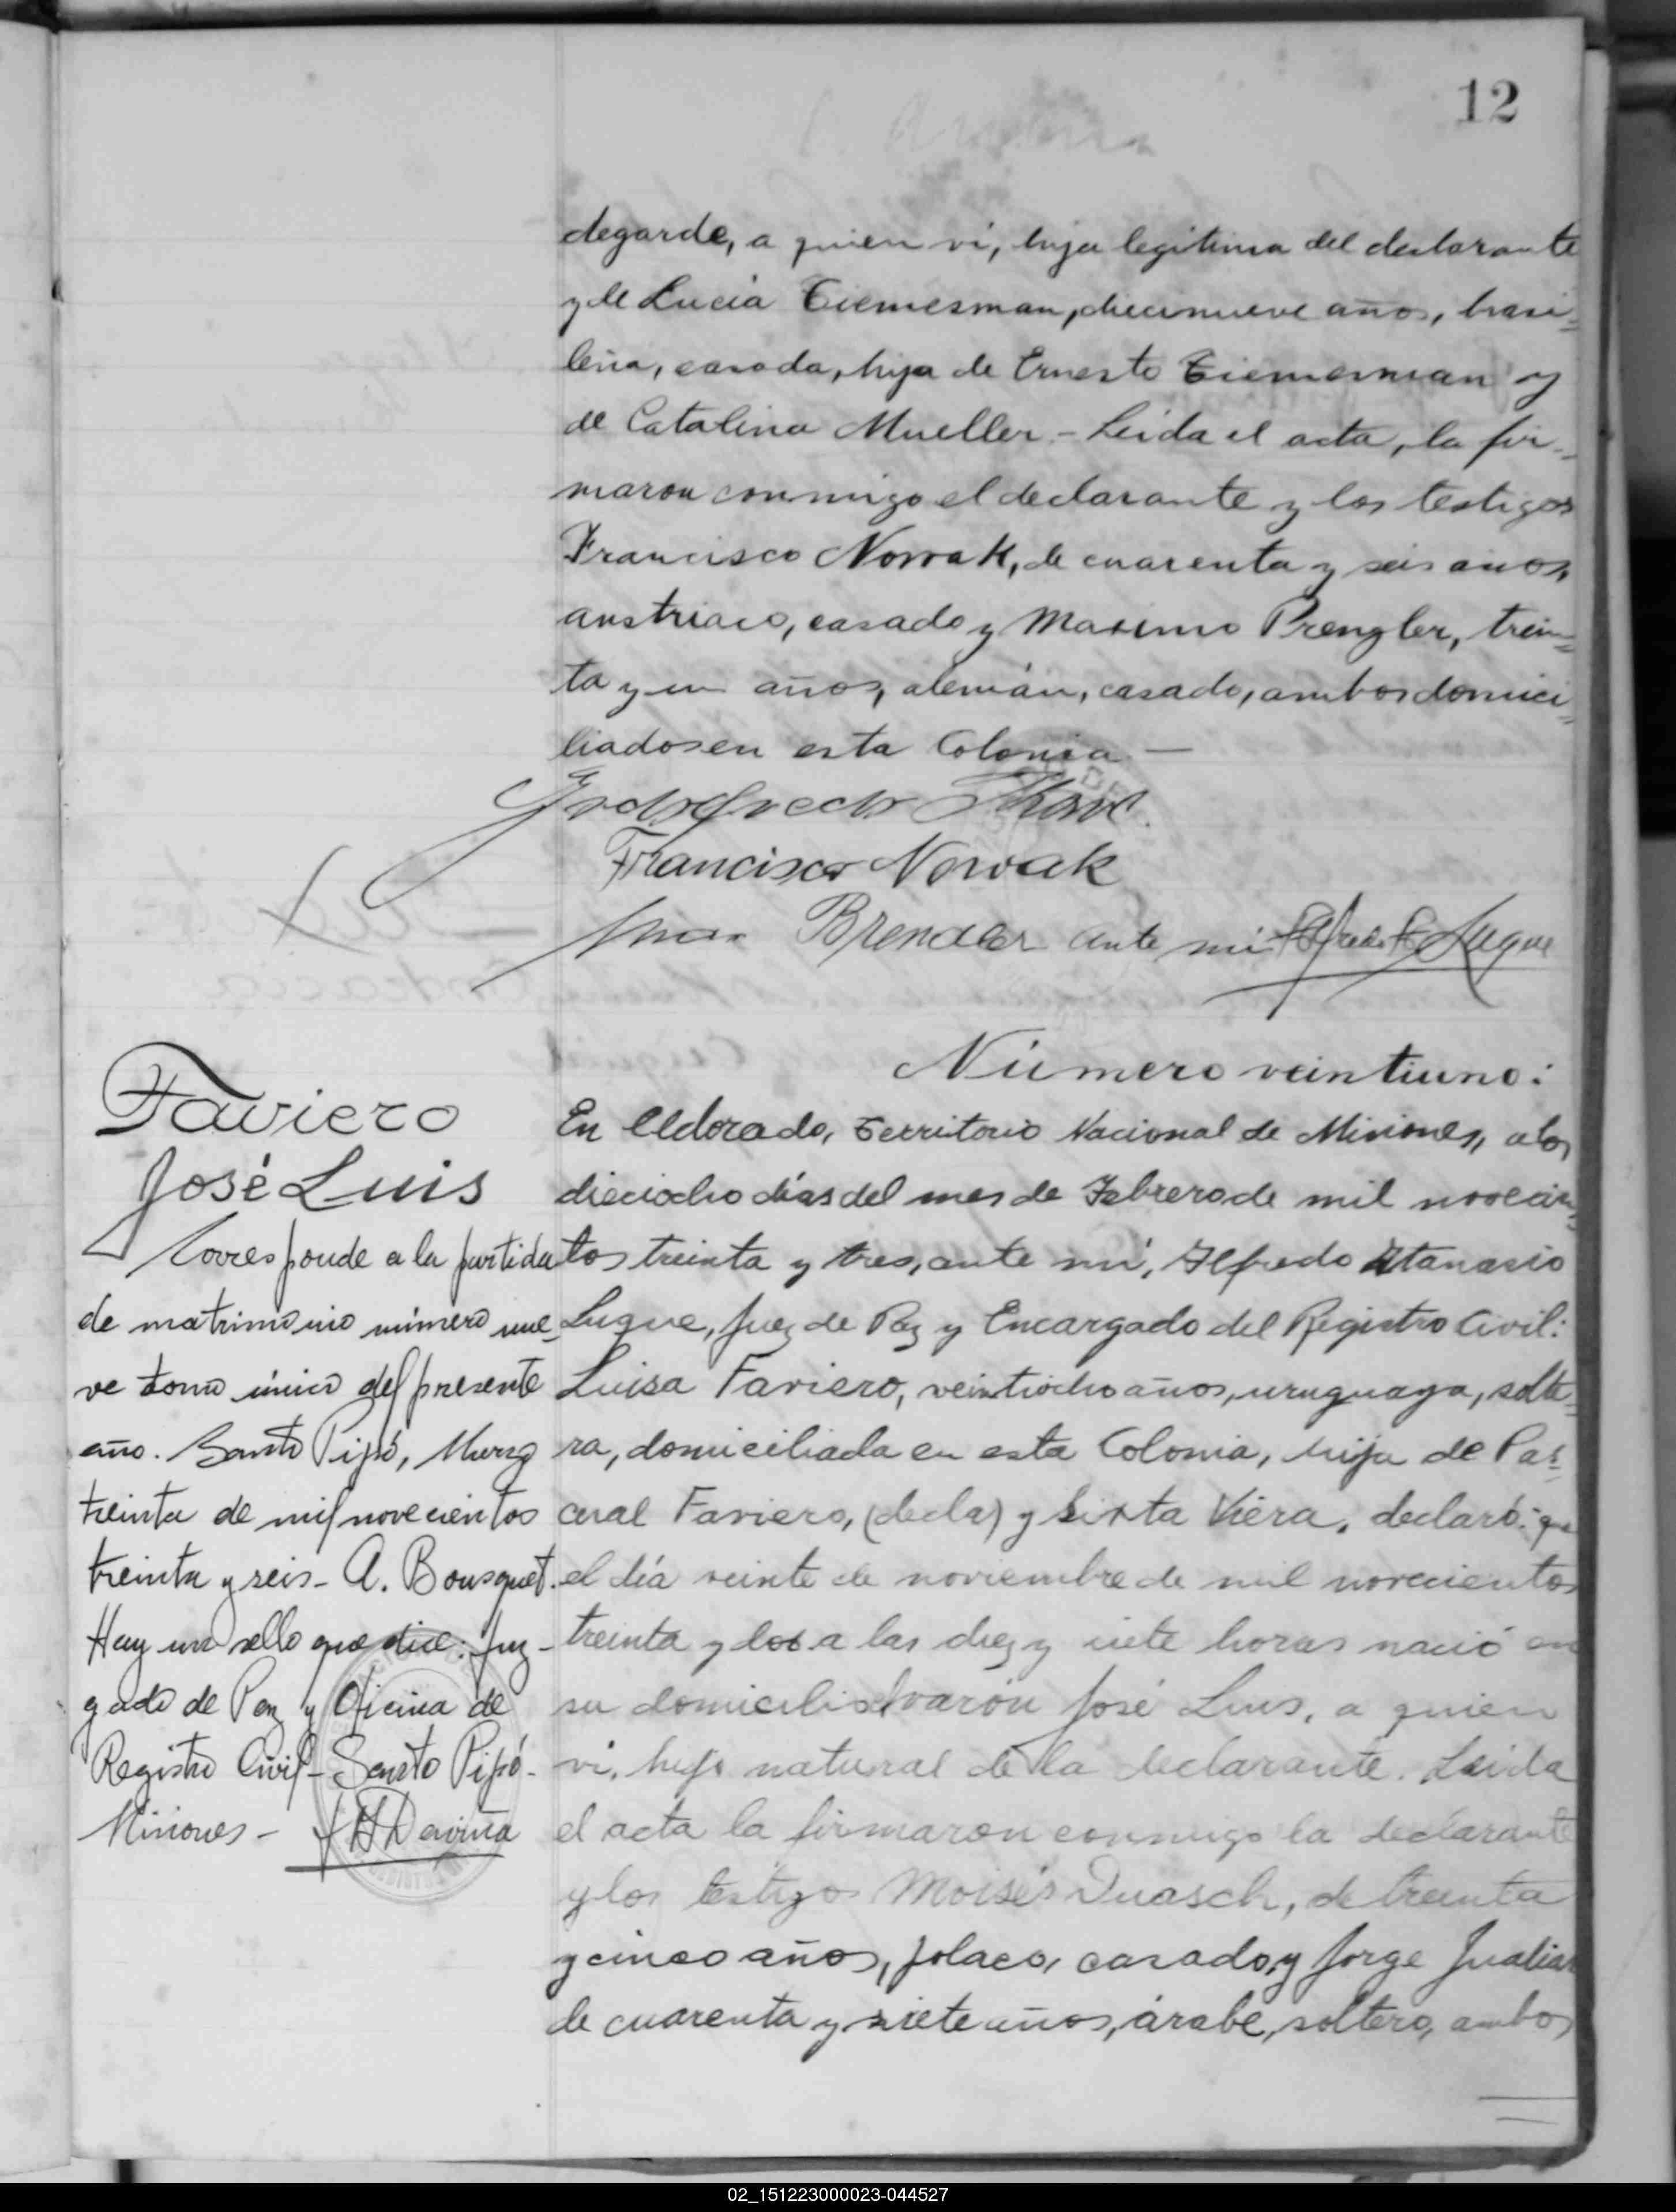 12
degarde, a quien vi, hija legítima del declarante
y de Lucía Tiemesman, diecinueve años, brasi=
leña, casada, hija de Ernesto Tiemesman y
de Catalina Mueller.- Leída el acta, la fir=
maron conmigo el declarante y los testigos
Francisco Nowak, de cuarenta y seis años,
austriaco, casado y Maximo Prengler, trein=
ta y un años, alemán, casado, ambos domici=
liados en esta Colonia —
Francisco Nowak
Brendler ante mi Alfredo A. Luque
Número veintiuno:
Faviero
José Luis
Corresponde a la partida
de matrimonio número nue=
ve tomo único del presente
año. Santo Pipó, Marzo
treinta de mil novecientos
treinta y seis- A. Bousquet.
Hay un sello que dice: Juz-
gado de Paz y Oficina de
Registro Civil- Santo Pipó-
Misiones -
En Eldorado, Territorio Nacional de Misiones, a los
dieciocho días del mes de Febrero de mil novecien=
tos treinta y tres, ante mí, Alfredo Atanasio
Luque, Juez de Paz y Encargado del Registro Civil:
Luisa Faviero, veintiocho años, uruguaya, solte=
ra, domiciliada en esta Colonia, hija de Pas=
cual Faviero, (decla) y Sixta Viera, declaró: que
el día veinte de noviembre de mil novecientos
treinta y dos a las diez y siete horas nació en
su domicilio el varón José Luis, a quien
vi, hijo natural de la declarante. Leída
el acta la firmaron conmigo la declarante
y los testigos Moisés Duasch, de treinta
y cinco años, polaco, casado, y Jorge
de cuarenta y siete años, árabe, soltero, ambos
02_151223000023-044527